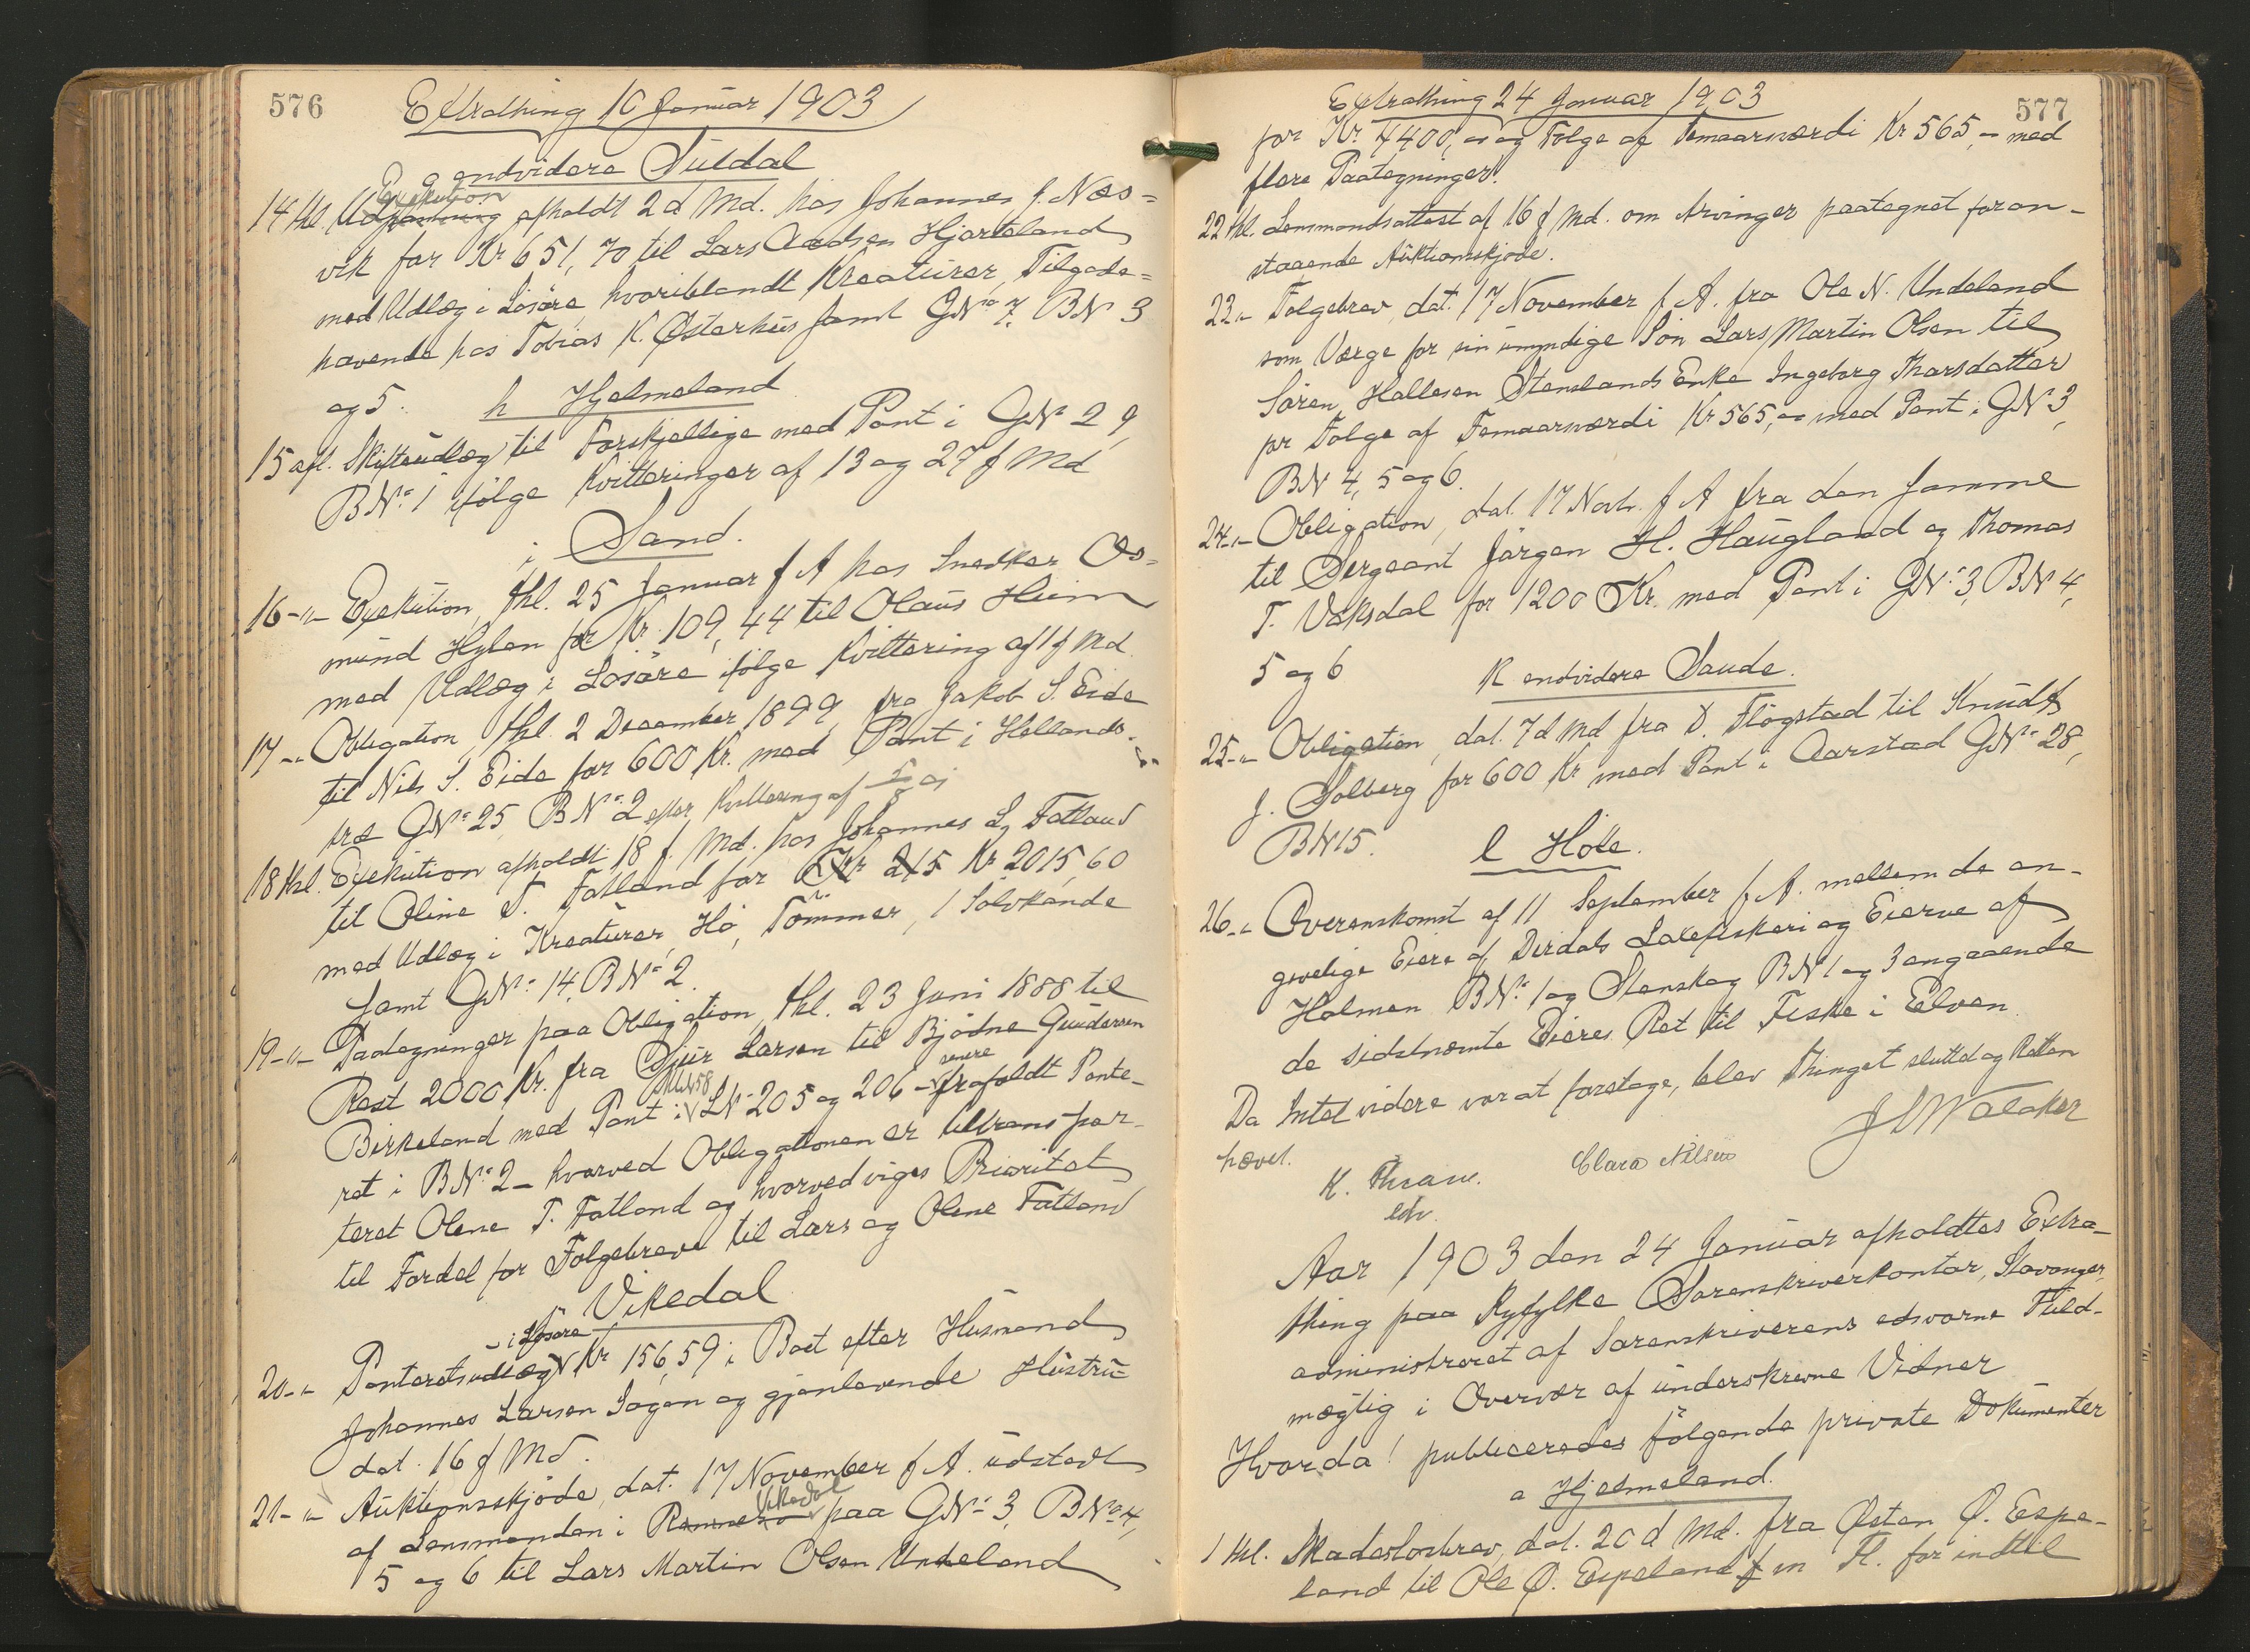 576
Extrathing 10 Januar 1903
g endvidere Suldal
14 thl. Udpantning Exekution afholdt 2 d Md. hos Johannes J. Næs=
vik for Kr 651,70 til Lars Aadsen Hjorteland
med Udlæg i Løsøre hvoriblandt Kreaturer, Tilgode=
havende hos Tobias K. Østerhus samt GNo 7 BN 3
og 5.
h Hjelmeland
15 afl. Skifteudlæg til Forskjellige med Pant i GNo 29,
BNo 1 ifølge Kvitteringer af 13 og 27 f Md
i Sand.
16 -"- Exekution, thl. 25 Januar f A hos Snedker Os=
mund Hylen for Kr. 109,44 til Olaus Hiim
med Udlæg i Løsøre ifølge Kvittering af 1 f Md.
17 -"- Obligation, thl. 2 December 1899 fra Jakob S. Eide
til Nils S. Eide for 600 Kr. med Pant i Hellands-
træ GNo 25, BNo 2 efter Kvittering af
18 thl. Exekution afholdt 18 f. Md. hos Johannes L. Fatland
til Oline T. Fatland for Kr 215 Kr 2015,60
med Udlæg i Kreaturer, Hø, Tømmer, 1 Sølvkande
samt GNo 14, BNo 2.
19 -"- Paategninger paa Obligation, thl. 23 Juni 1888 til
Rest 2000 Kr. fra Sjur Larsen til Bjødne Gundersen
Birkeland med Pant i LNo 205 og 206 - senere frafaldt Pante-
ret i BNo 2 - hvorved Obligationen er tiltranspor-
teret Olene T. Fatland og hvorved viges Prioritet
til Fordel for Følgebreve til Lars og Olene Fatland
j Vikedal
20 -"- Panteretsudlæg i Løsøre Kr 156,59 i Boet efter Husmand
Johannes Larsen Iogen og gjenlevende Hustru
dat. 16 f Md.
21 -"- Auktionsskjøde, dat. 17 November f A. udstedt
af Lensmanden i Rennesø Vikedal paa GNo 3, BNo 4,
5 og 6 til Lars Martin Olsen Undeland
577
Extrathing 24 Januar 1903
for Kr. 4400,- og Følge af Femaarsværdi Kr 565,- med
flere Paategninger.
22 thl. Lensmandsattest af 16 f Md. om Arvinger paategnet foran-
staaende Auktionsskjøde.
23 -"- Følgebrev, dat. 17 November f A. fra Ole N. Undeland
som Værge for sin umyndige Søn Lars Martin Olsen til
Søren Hallesen Stenslands Enke Ingeborg Tharsdatter
pr Følge af Femaarsværdi Kr 565,- med Pant i GN 3,
BN 4, 5 og 6.
24 -"- Obligation, dat. 17 Novbr. f A fra den samme
til Sergeant Jørgen H. Haugland og Thomas
T. Vaksdal for 1200 Kr. med Pant i GNo 3, BN 4,
5 og 6
k endvidere Saude.
25 -"- Obligation, dat. 7 d Md fra D. Fløgstad til Knud
J. Solberg for 600 Kr med Pant i Aarstad GNo 28,
BN 15.
l Høle.
26 -"- Overenskomst af 11 September f A. mellem de an-
givelige Eiere af Dirdals Laxefiskeri og Eierne af
Holmen BNo 1 og Stenskog BN 1 og 3 angaaende
de sidstnævnte Eieres Ret til Fiske i Elven.
Da Intet videre var at foretage, blev Thinget sluttet og Retten
hævet.
J S Walaker
K. Thraw. Clara Nilsen
edv.
Aar 1903 den 24 Januar afholdtes Extra-
thing paa Ryfylke Sorenskriverkontor, Stavanger,
administreret af Sorenskriverens edsvorne Fuld-
mægtig i Overvær af underskrevne Vidner
Hvorda! publiceredes følgende private Dokumenter
a Hjelmeland.
1 thl. Skadesløsbrev, dat. 20 d Md. fra Østen Ø. Espe-
land til Ole Ø. Espeland m Fl. for indtil